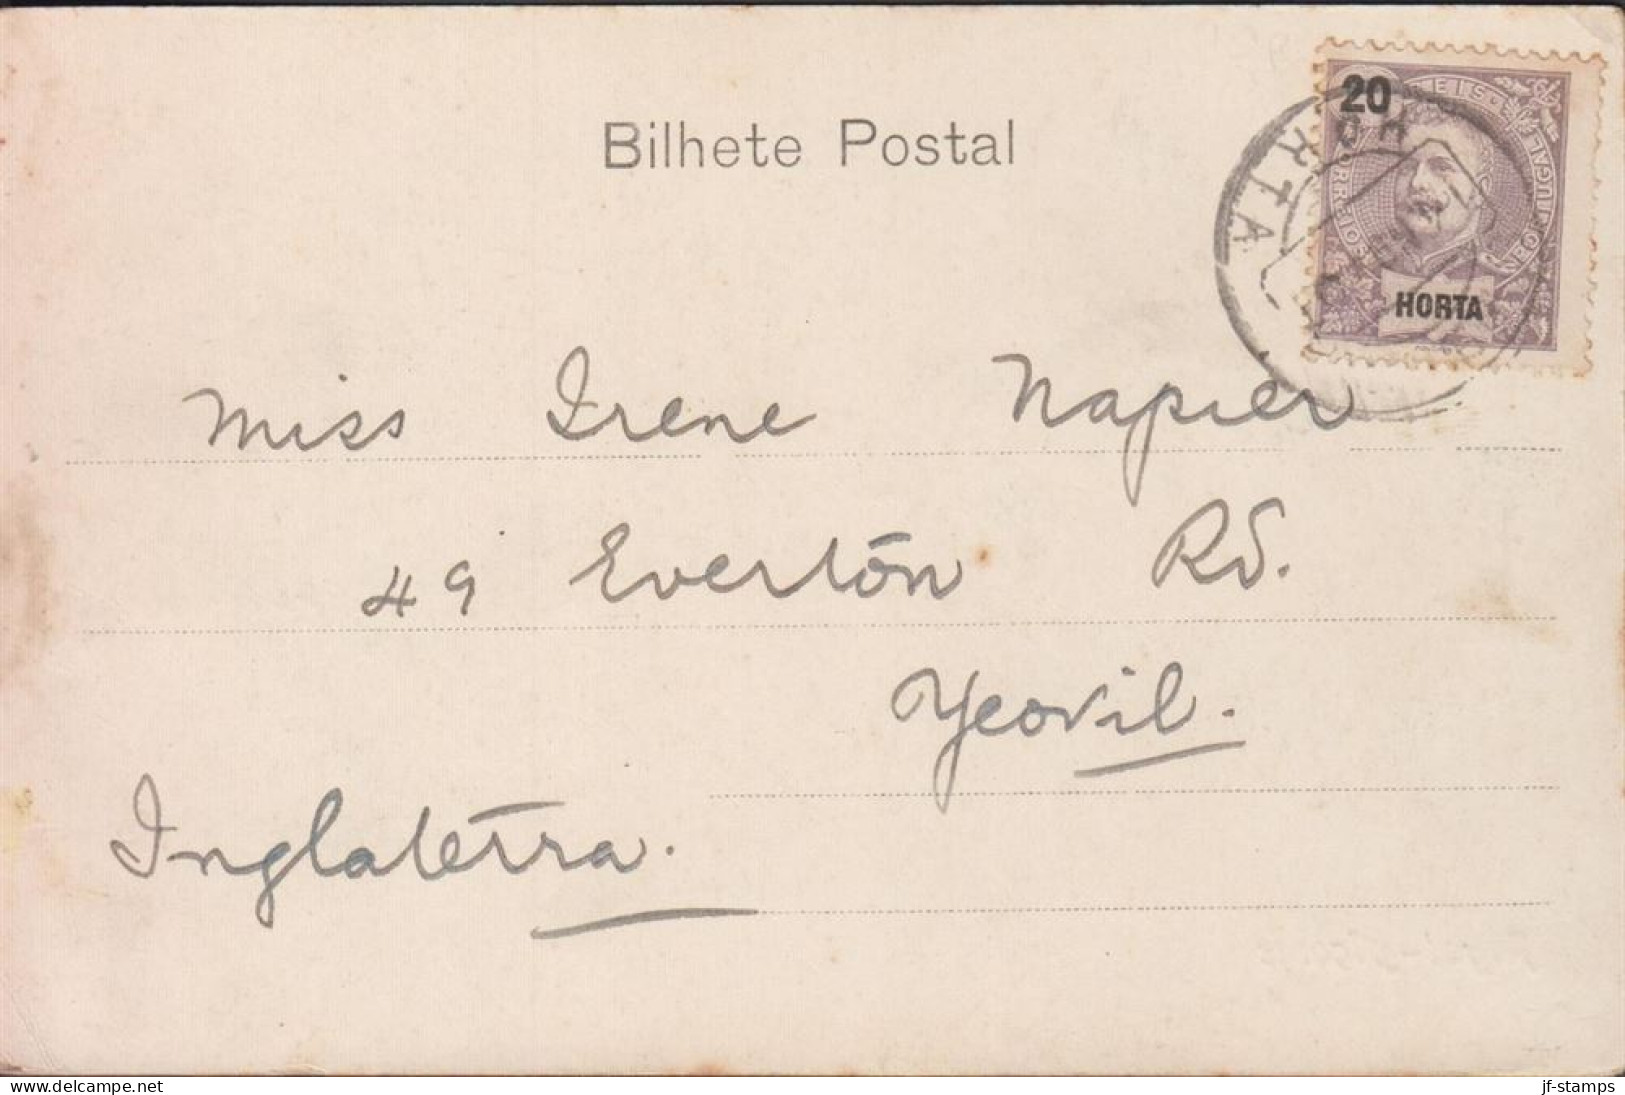 Bilhete Postal
20
REIS
PORTUGAL
CORREIOS
HORTA
HORTA
Miss Irene Napier
49 Everton Rd.
Yeovil.
Inglaterra.
www.delcampe.net
jf-stamps